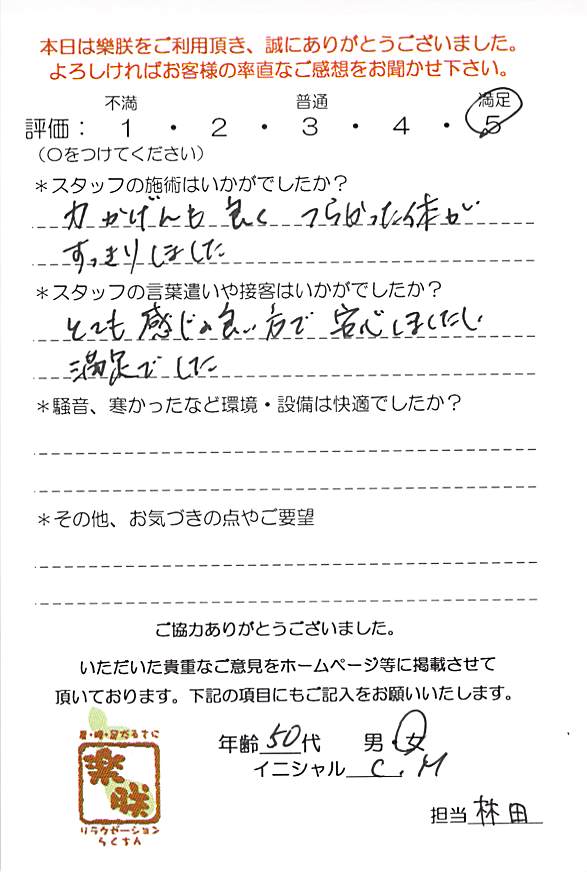 本日は樂朕をご利用頂き、誠にありがとうございました。
よろしければお客様の率直なご感想をお聞かせ下さい。
不満 普通 満足
評価： 1 ・ 2 ・ 3 ・ 4 ・ 5
（○をつけてください）
＊スタッフの施術はいかがでしたか？
力かげんも良く つらかった体が
すっきりしました
＊スタッフの言葉遣いや接客はいかがでしたか？
とても感じの良い方で安心しましたし
満足でした
＊騒音、寒かったなど環境・設備は快適でしたか？
＊その他、お気づきの点やご要望
ご協力ありがとうございました。
いただいた貴重なご意見をホームページ等に掲載させて
頂いております。下記の項目にもご記入をお願いいたします。
年齢 50代 男・女
イニシャル C.M
担当 林田
樂朕
リラクゼーション
らくちん